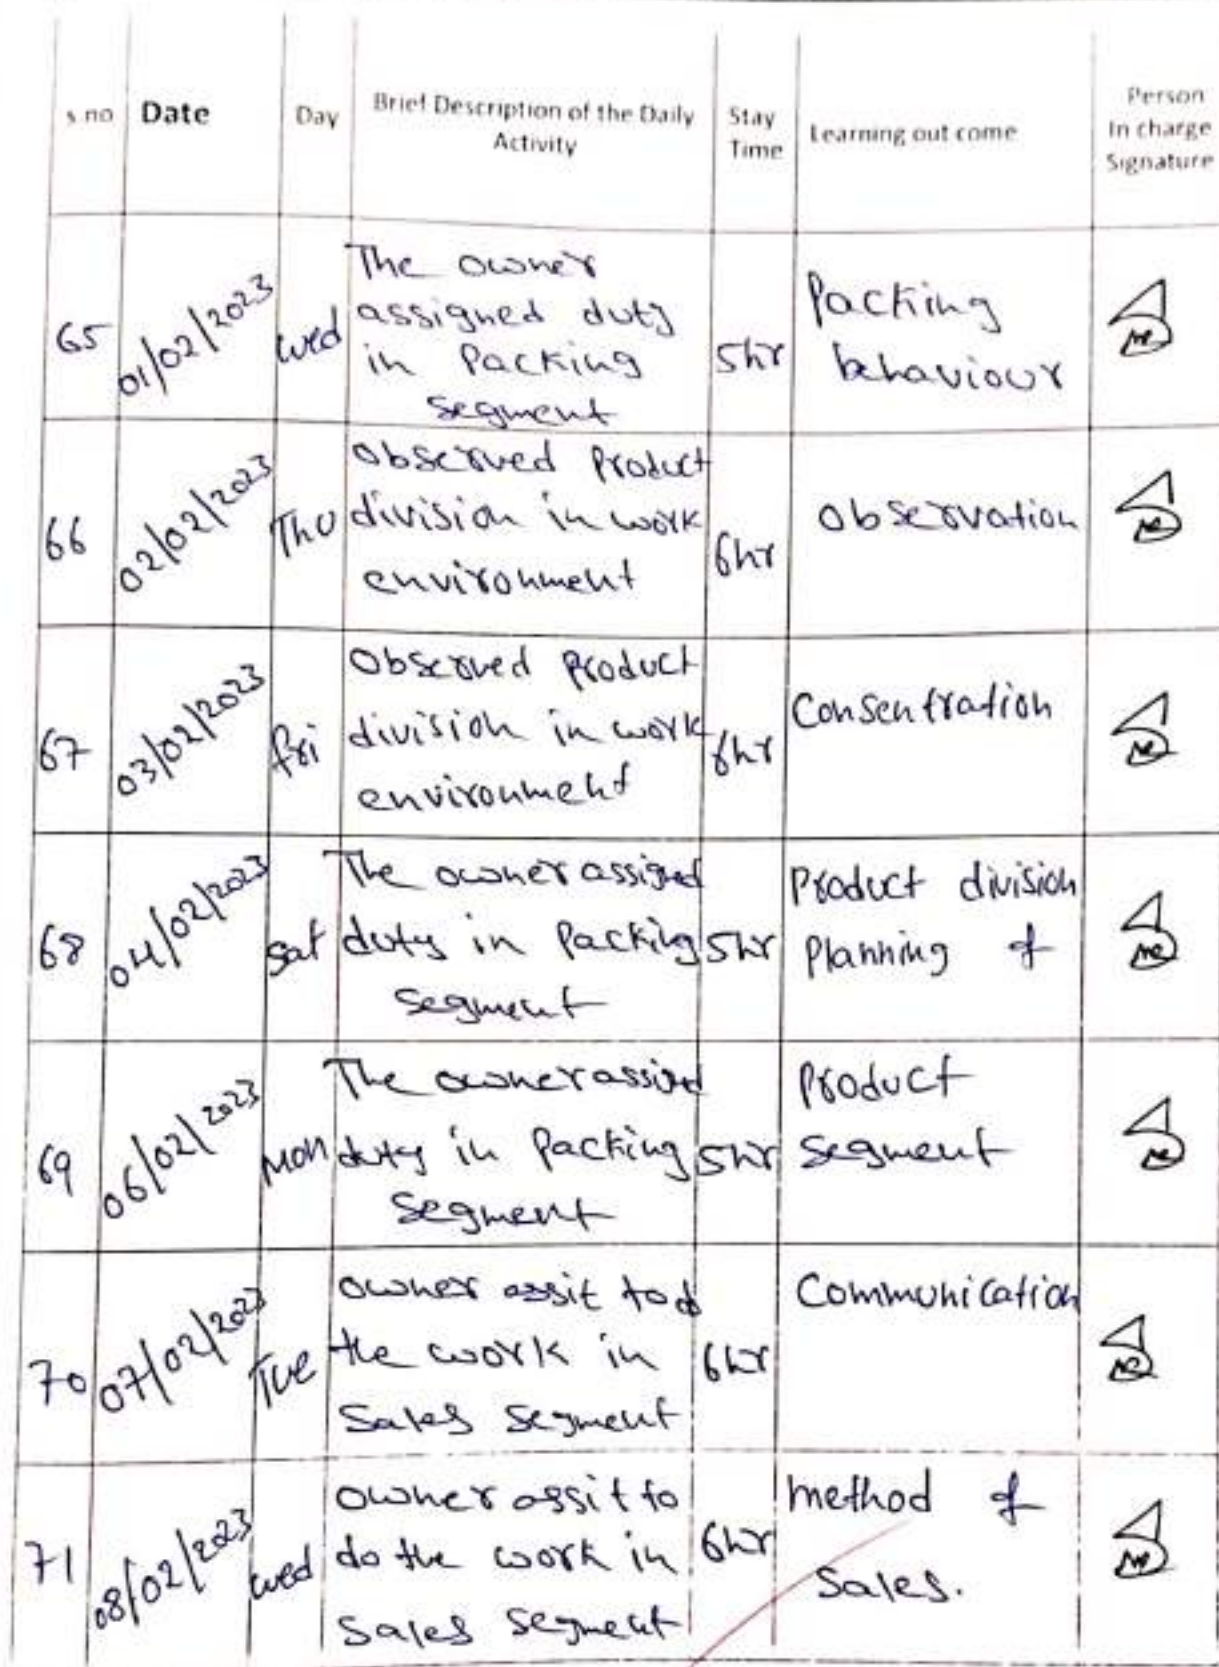 s.no Date Day Brief Description of the Daily Activity Stay Time Learning out come Person In charge Signature
65 01/02/2023 wed The owner assigned duty in Packing segment 5hr Packing behaviour
66 02/02/2023 Thu Observed Product division in work environment 6hr Observation
67 03/02/2023 fri Observed product division in work environment 6hr Consentration
68 04/02/2023 sat The owner assigned duty in Packing segment 5hr Product division Planning of
69 06/02/2023 Mon The owner assind duty in Packing segment 5hr Product segment
70 07/02/2023 Tue owner assit to do the work in Sales segment 6hr Communication
71 08/02/2023 wed owner assit to do the work in Sales segment 6hr method of Sales.